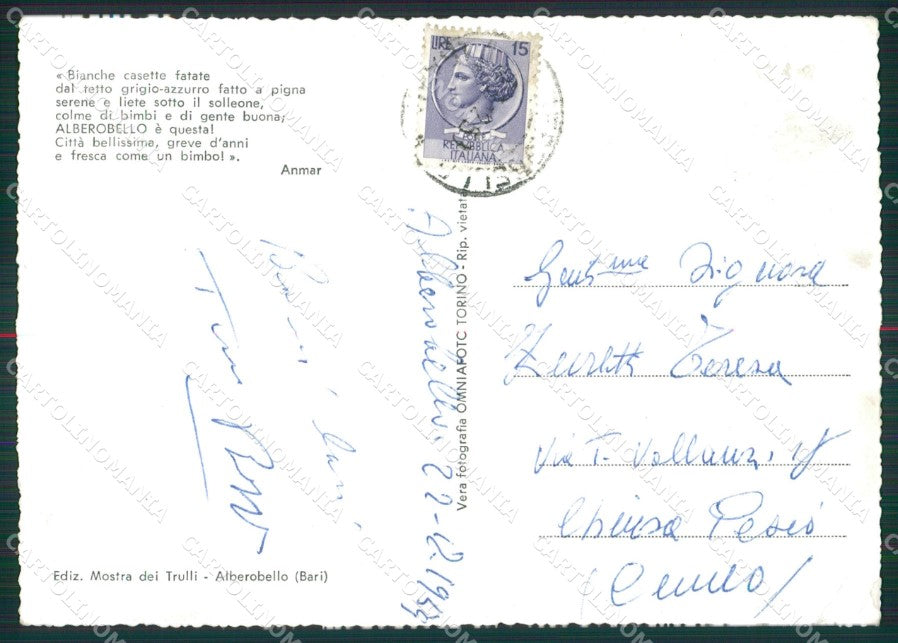 « Bianche casette fatate
dal tetto grigio-azzurro fatto a pigna
serene e liete sotto il solleone,
colme di bimbi e di gente buona;
ALBEROBELLO è questa!
Città bellissima, greve d'anni
e fresca come un bimbo! ».
Anmar
LIRE 15
REPUBBLICA
ITALIANA
Alberobello, 22-12
Vera fotografia OMNIAFOTC TORINO - Rip. vietata
Gent.ma Signora
Teresa
Via T. Vallauri
Chiusa Pesio
(Cuneo)
Ediz. Mostra dei Trulli - Alberobello (Bari)
CARTOLINOMANIA